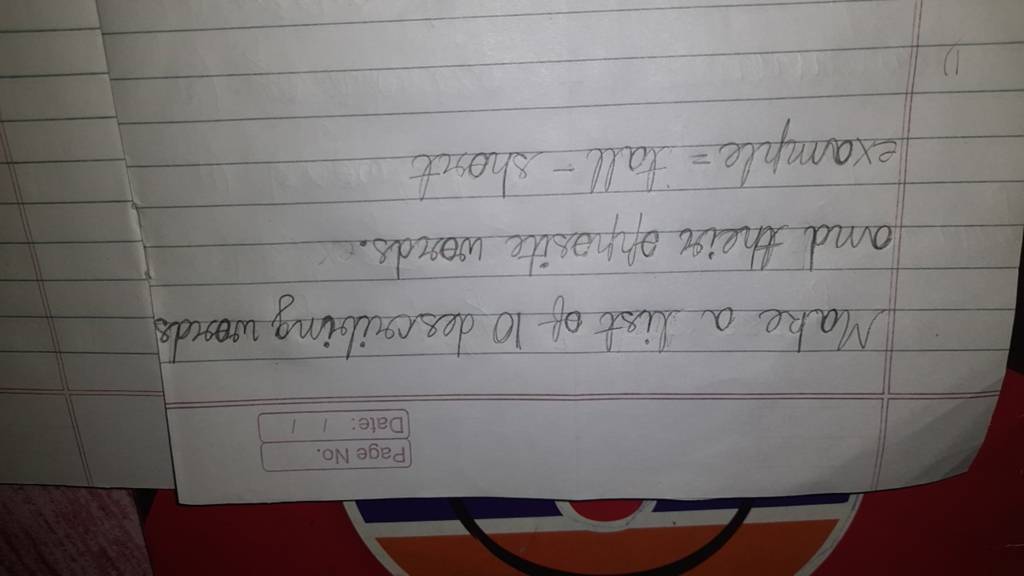 Page No.
Date: / /
Make a list of 10 describing words
and their opposite words.
example = tall - short
1)